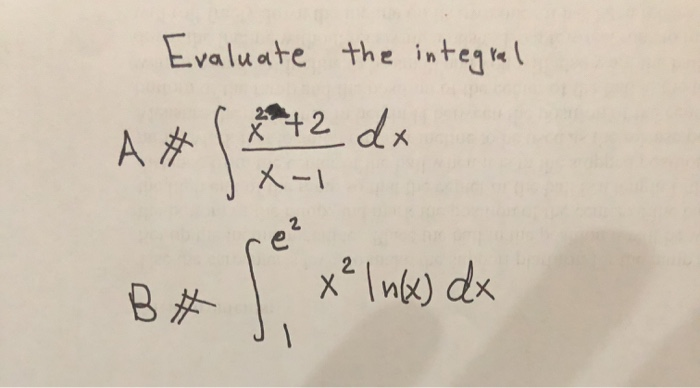 Evaluate the integral
A # ∫ (x² + 2)/(x - 1) dx
B # ∫₁^(e²) x² ln(x) dx